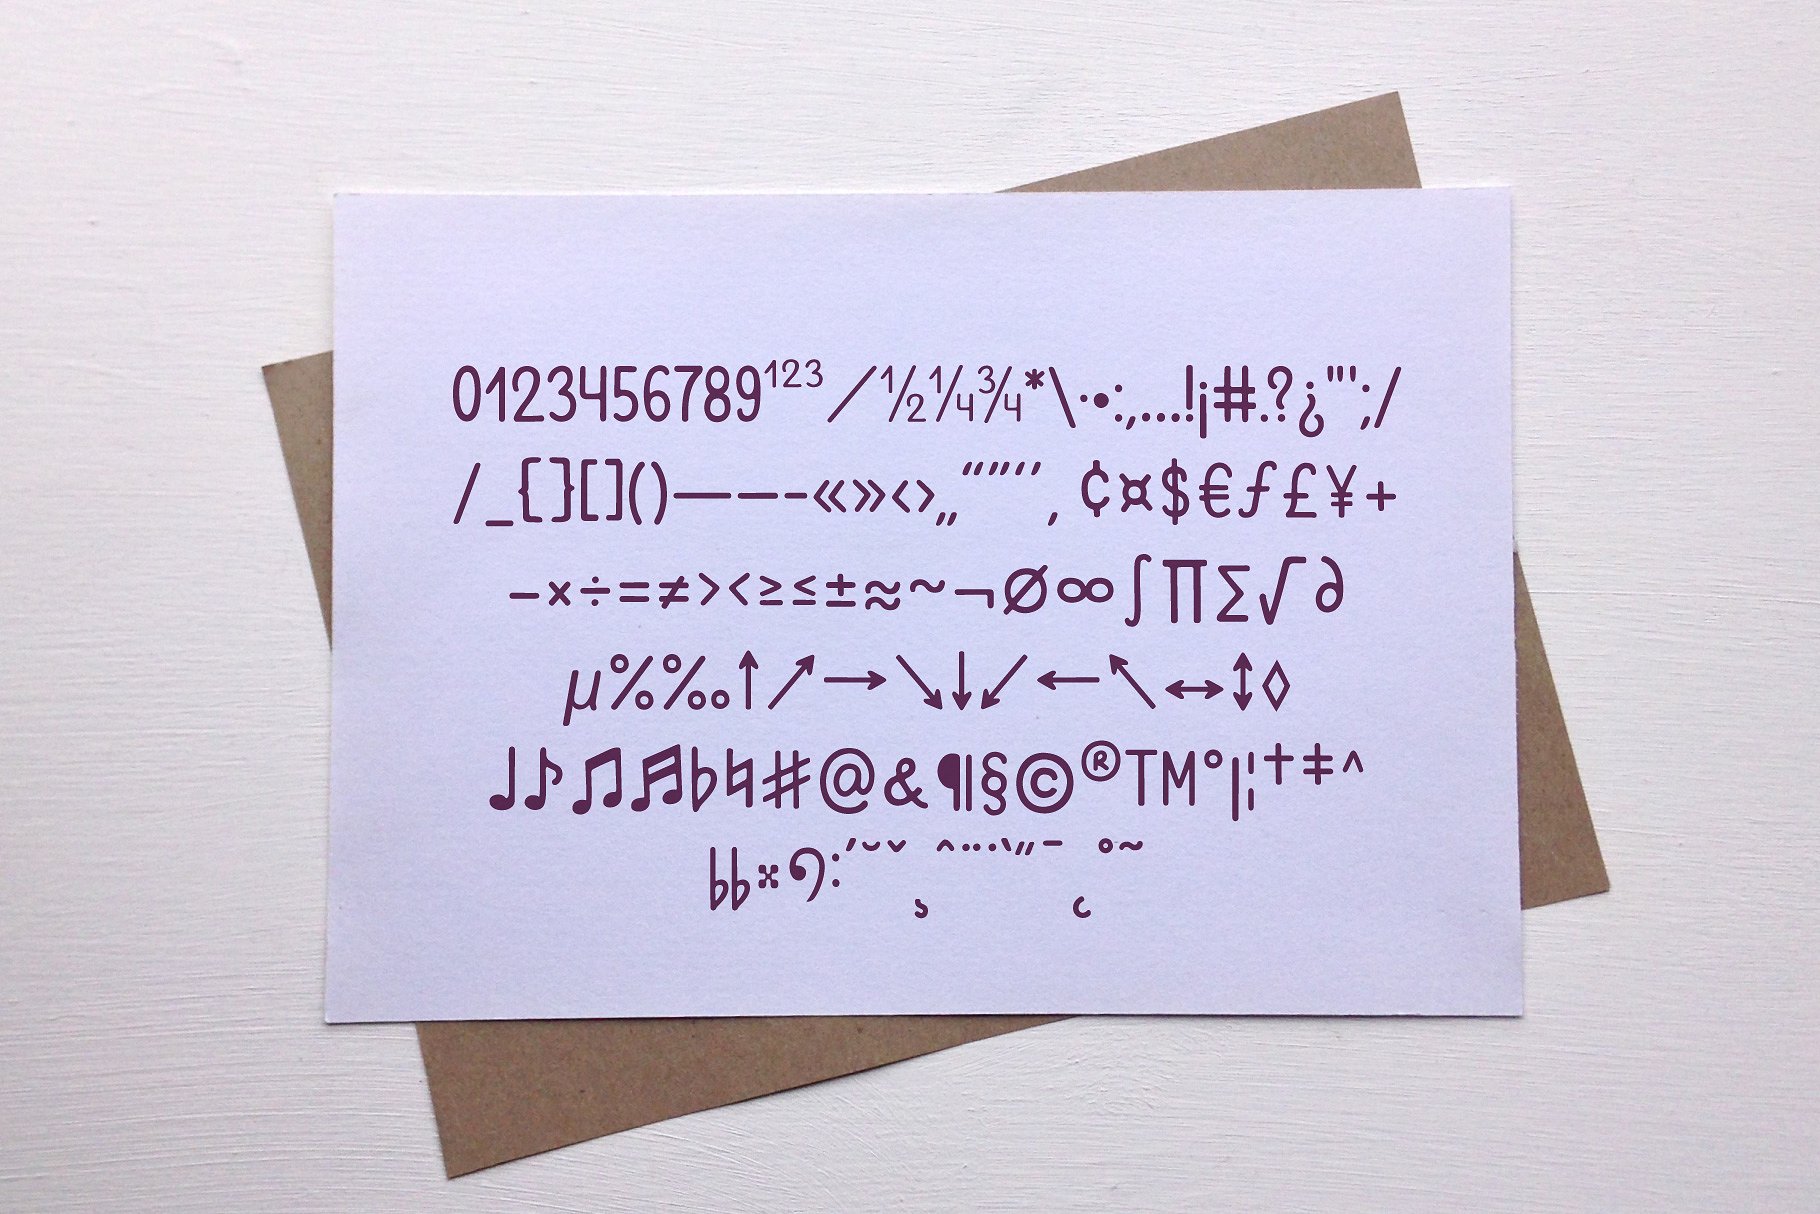 0123456789¹²³⁄½¼¾*\·•:,…!¡#.?¿"';/
/_{}[]()—–-«»‹›„“”‘’‚¢¤$€ƒ£¥+
−×÷=≠><≥≤±≈~¬∅∞∫∏∑√∂
µ%‰↑↗→↘↓↙←↖↔↕◊
♩♪♫♬♭♮♯@&¶§©®™°|¦†‡^
𝄫𝄪𝄢´˘ˇ¸ˆ¨˙`˝¯˛˚˜